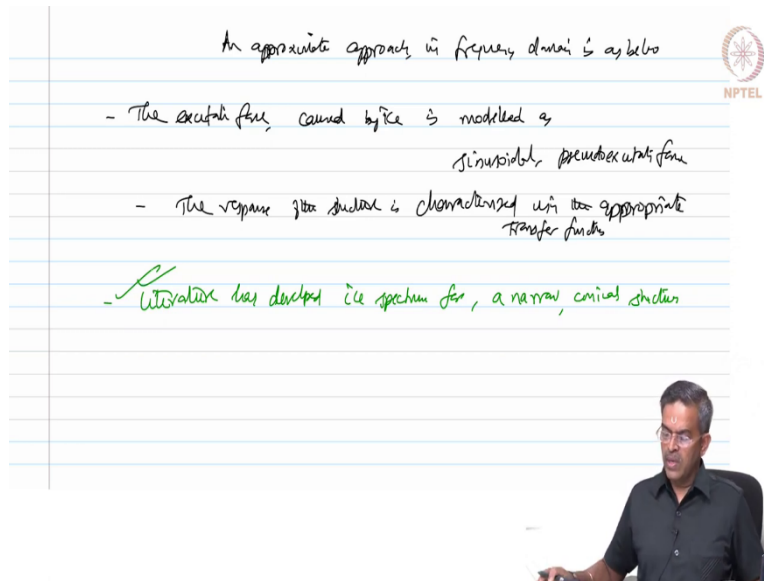 An approximate approach, in frequency domain is as below
NPTEL
- The excitation force, caused by ice is modelled as
sinusoidal, pseudoexcitation force
- The response of the structure is characterized using the appropriate
transfer function
- Literature has developed ice spectrum for, a narrow, conical structure